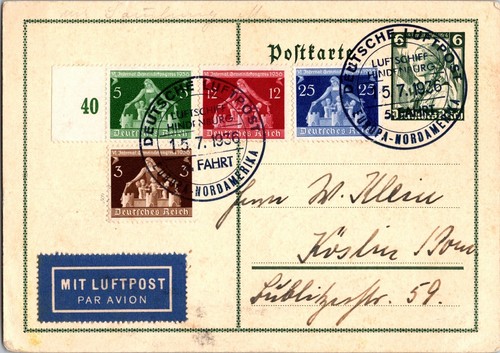 Postkarte
6
6
DEUTSCHE LUFTPOST
LUFTSCHIFF
HINDENBURG
15.7.1936
FAHRT
EUROPA-NORDAMERIKA
40
5
Deutsches Reich
12
12
Deutsches Reich
25
25
Deutsches Reich
DEUTSCHE LUFTPOST
LUFTSCHIFF
HINDENBURG
15.7.1936
FAHRT
NORDAMERIKA
3
3
Deutsches Reich
Herrn W. Klein
Köslin/Pom
Bublitzerstr. 59.
MIT LUFTPOST
PAR AVION